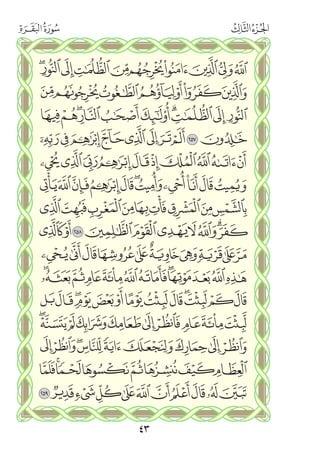 الجُزْءُ الثَّالِثُ سُورَةُ البَقَرَةِ
ٱللَّهُ وَلِىُّ ٱلَّذِينَ ءَامَنُوا۟ يُخْرِجُهُم مِّنَ ٱلظُّلُمَـٰتِ إِلَى ٱلنُّورِ ۖ
وَٱلَّذِينَ كَفَرُوٓا۟ أَوْلِيَآؤُهُمُ ٱلطَّـٰغُوتُ يُخْرِجُونَهُم مِّنَ
ٱلنُّورِ إِلَى ٱلظُّلُمَـٰتِ ۗ أُو۟لَـٰٓئِكَ أَصْحَـٰبُ ٱلنَّارِ ۖ هُمْ فِيهَا
خَـٰلِدُونَ ٢٥٧ أَلَمْ تَرَ إِلَى ٱلَّذِى حَآجَّ إِبْرَٰهِـۧمَ فِى رَبِّهِۦٓ
أَنْ ءَاتَىٰهُ ٱللَّهُ ٱلْمُلْكَ إِذْ قَالَ إِبْرَٰهِـۧمُ رَبِّىَ ٱلَّذِى يُحْىِۦ
وَيُمِيتُ قَالَ أَنَا۠ أُحْىِۦ وَأُمِيتُ ۖ قَالَ إِبْرَٰهِـۧمُ فَإِنَّ ٱللَّهَ يَأْتِى
بِٱلشَّمْسِ مِنَ ٱلْمَشْرِقِ فَأْتِ بِهَا مِنَ ٱلْمَغْرِبِ فَبُهِتَ ٱلَّذِى
كَفَرَ ۗ وَٱللَّهُ لَا يَهْدِى ٱلْقَوْمَ ٱلظَّـٰلِمِينَ ٢٥٨ أَوْ كَٱلَّذِى
مَرَّ عَلَىٰ قَرْيَةٍ وَهِىَ خَاوِيَةٌ عَلَىٰ عُرُوشِهَا قَالَ أَنَّىٰ يُحْىِۦ
هَـٰذِهِ ٱللَّهُ بَعْدَ مَوْتِهَا ۖ فَأَمَاتَهُ ٱللَّهُ مِا۟ئَةَ عَامٍ ثُمَّ بَعَثَهُۥ ۖ
قَالَ كَمْ لَبِثْتَ ۖ قَالَ لَبِثْتُ يَوْمًا أَوْ بَعْضَ يَوْمٍ ۖ قَالَ بَل
لَّبِثْتَ مِا۟ئَةَ عَامٍ فَٱنظُرْ إِلَىٰ طَعَامِكَ وَشَرَابِكَ لَمْ يَتَسَنَّهْ ۖ
وَٱنظُرْ إِلَىٰ حِمَارِكَ وَلِنَجْعَلَكَ ءَايَةً لِّلنَّاسِ ۖ وَٱنظُرْ إِلَى
ٱلْعِظَامِ كَيْفَ نُنشِزُهَا ثُمَّ نَكْسُوهَا لَحْمًا ۚ فَلَمَّا
تَبَيَّنَ لَهُۥ قَالَ أَعْلَمُ أَنَّ ٱللَّهَ عَلَىٰ كُلِّ شَىْءٍ قَدِيرٌ ٢٥٩
٤٣